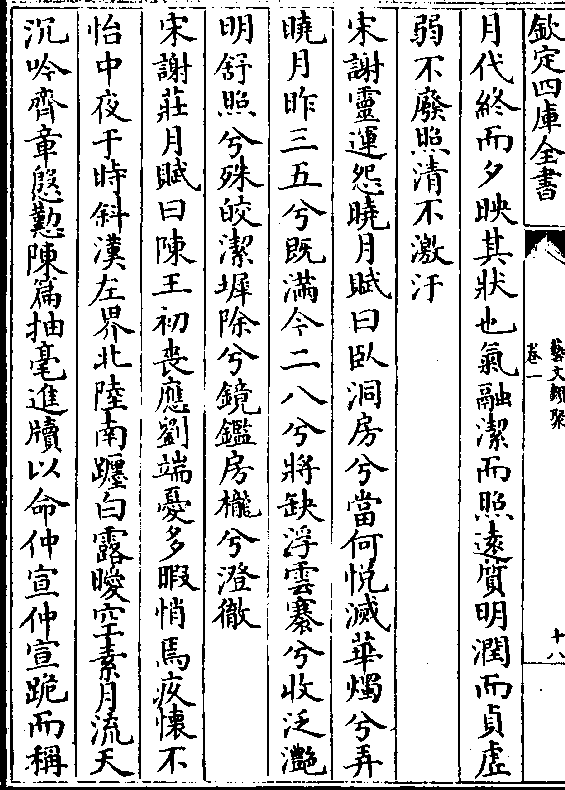 欽定四庫全書
藝文類聚
卷一
十八
月代終而夕映其狀也氣融潔而照遠質明潤而貞虛
弱不廢照清不激汙
宋謝靈運怨曉月賦曰臥洞房兮當何悅滅華燭兮弄
曉月昨三五兮既滿今二八兮將缺浮雲褰兮收泛灩
明舒照兮殊皎潔墀除兮鏡鑑房櫳兮澄徹
宋謝莊月賦曰陳王初喪應劉端憂多暇悄焉疚懷不
怡中夜于時斜漢左界北陸南躔白露曖空素月流天
沉吟齊章慇懃陳篇抽毫進牘以命仲宣仲宣跪而稱